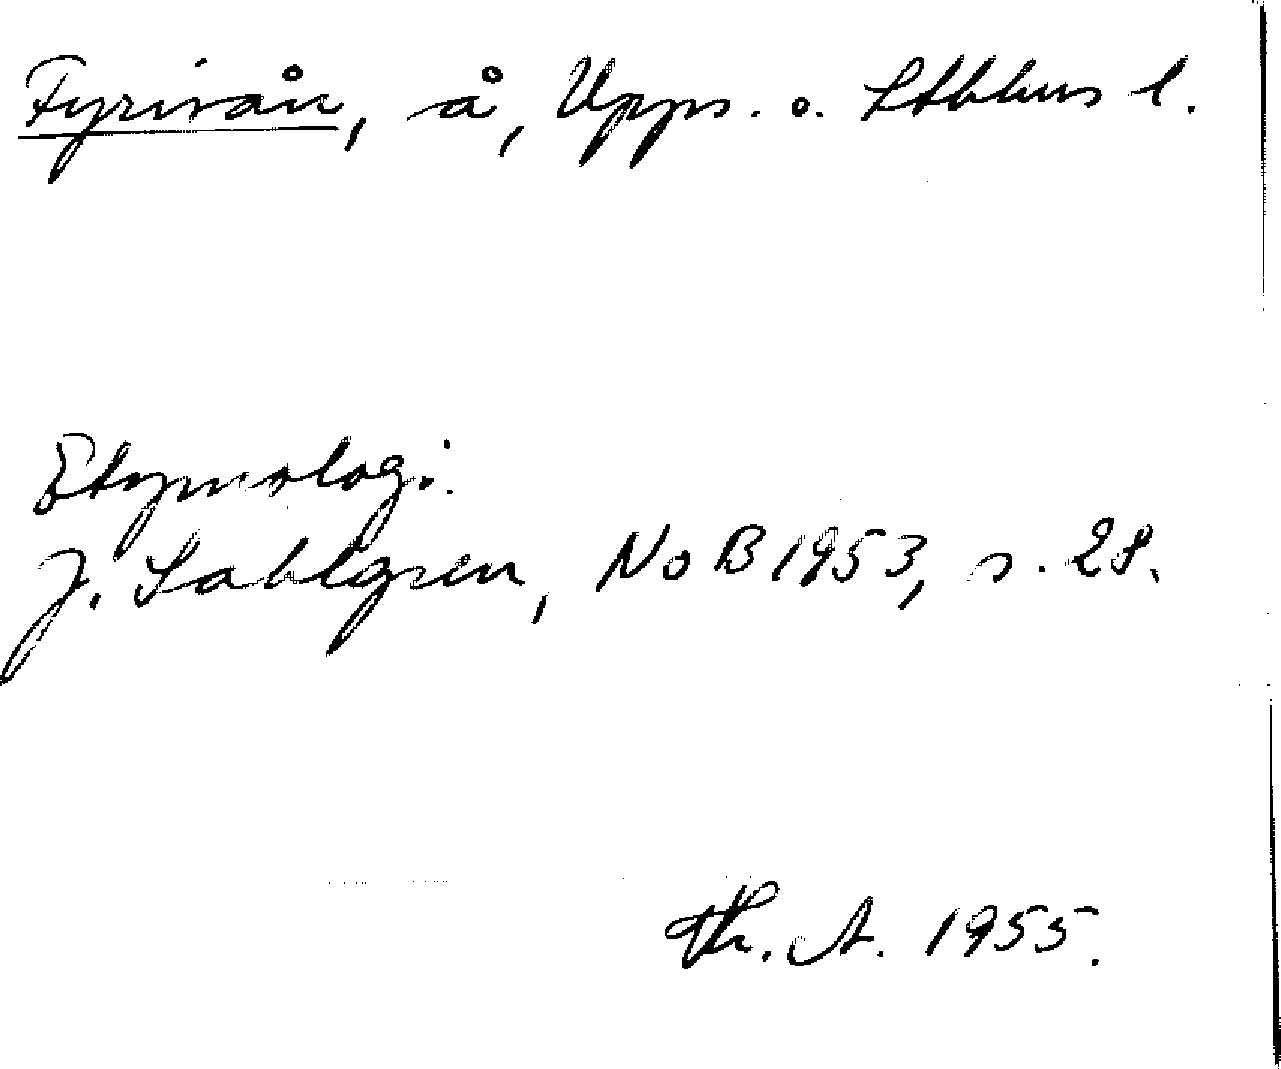 Fyrisån, å, Upps. o. Sthlms l.
Etymologi.
J. Sahlgren, NoB 1953, s. 28.
Th. A. 1955.